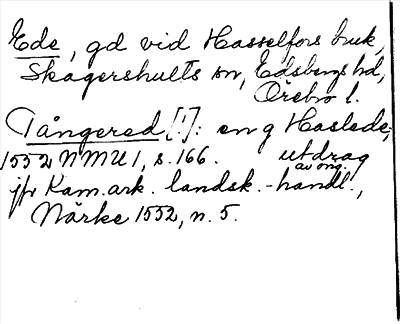 Ede, gd vid Hasselfors bruk,
Skagershults sn, Edsbergs hd,
Örebro l.
Tångered [!]: en g Haslede;
1552 NMU 1, s. 166. utdrag
av orig.
jfr Kam.ark. landsk.-handl.,
Närke 1552, n. 5.